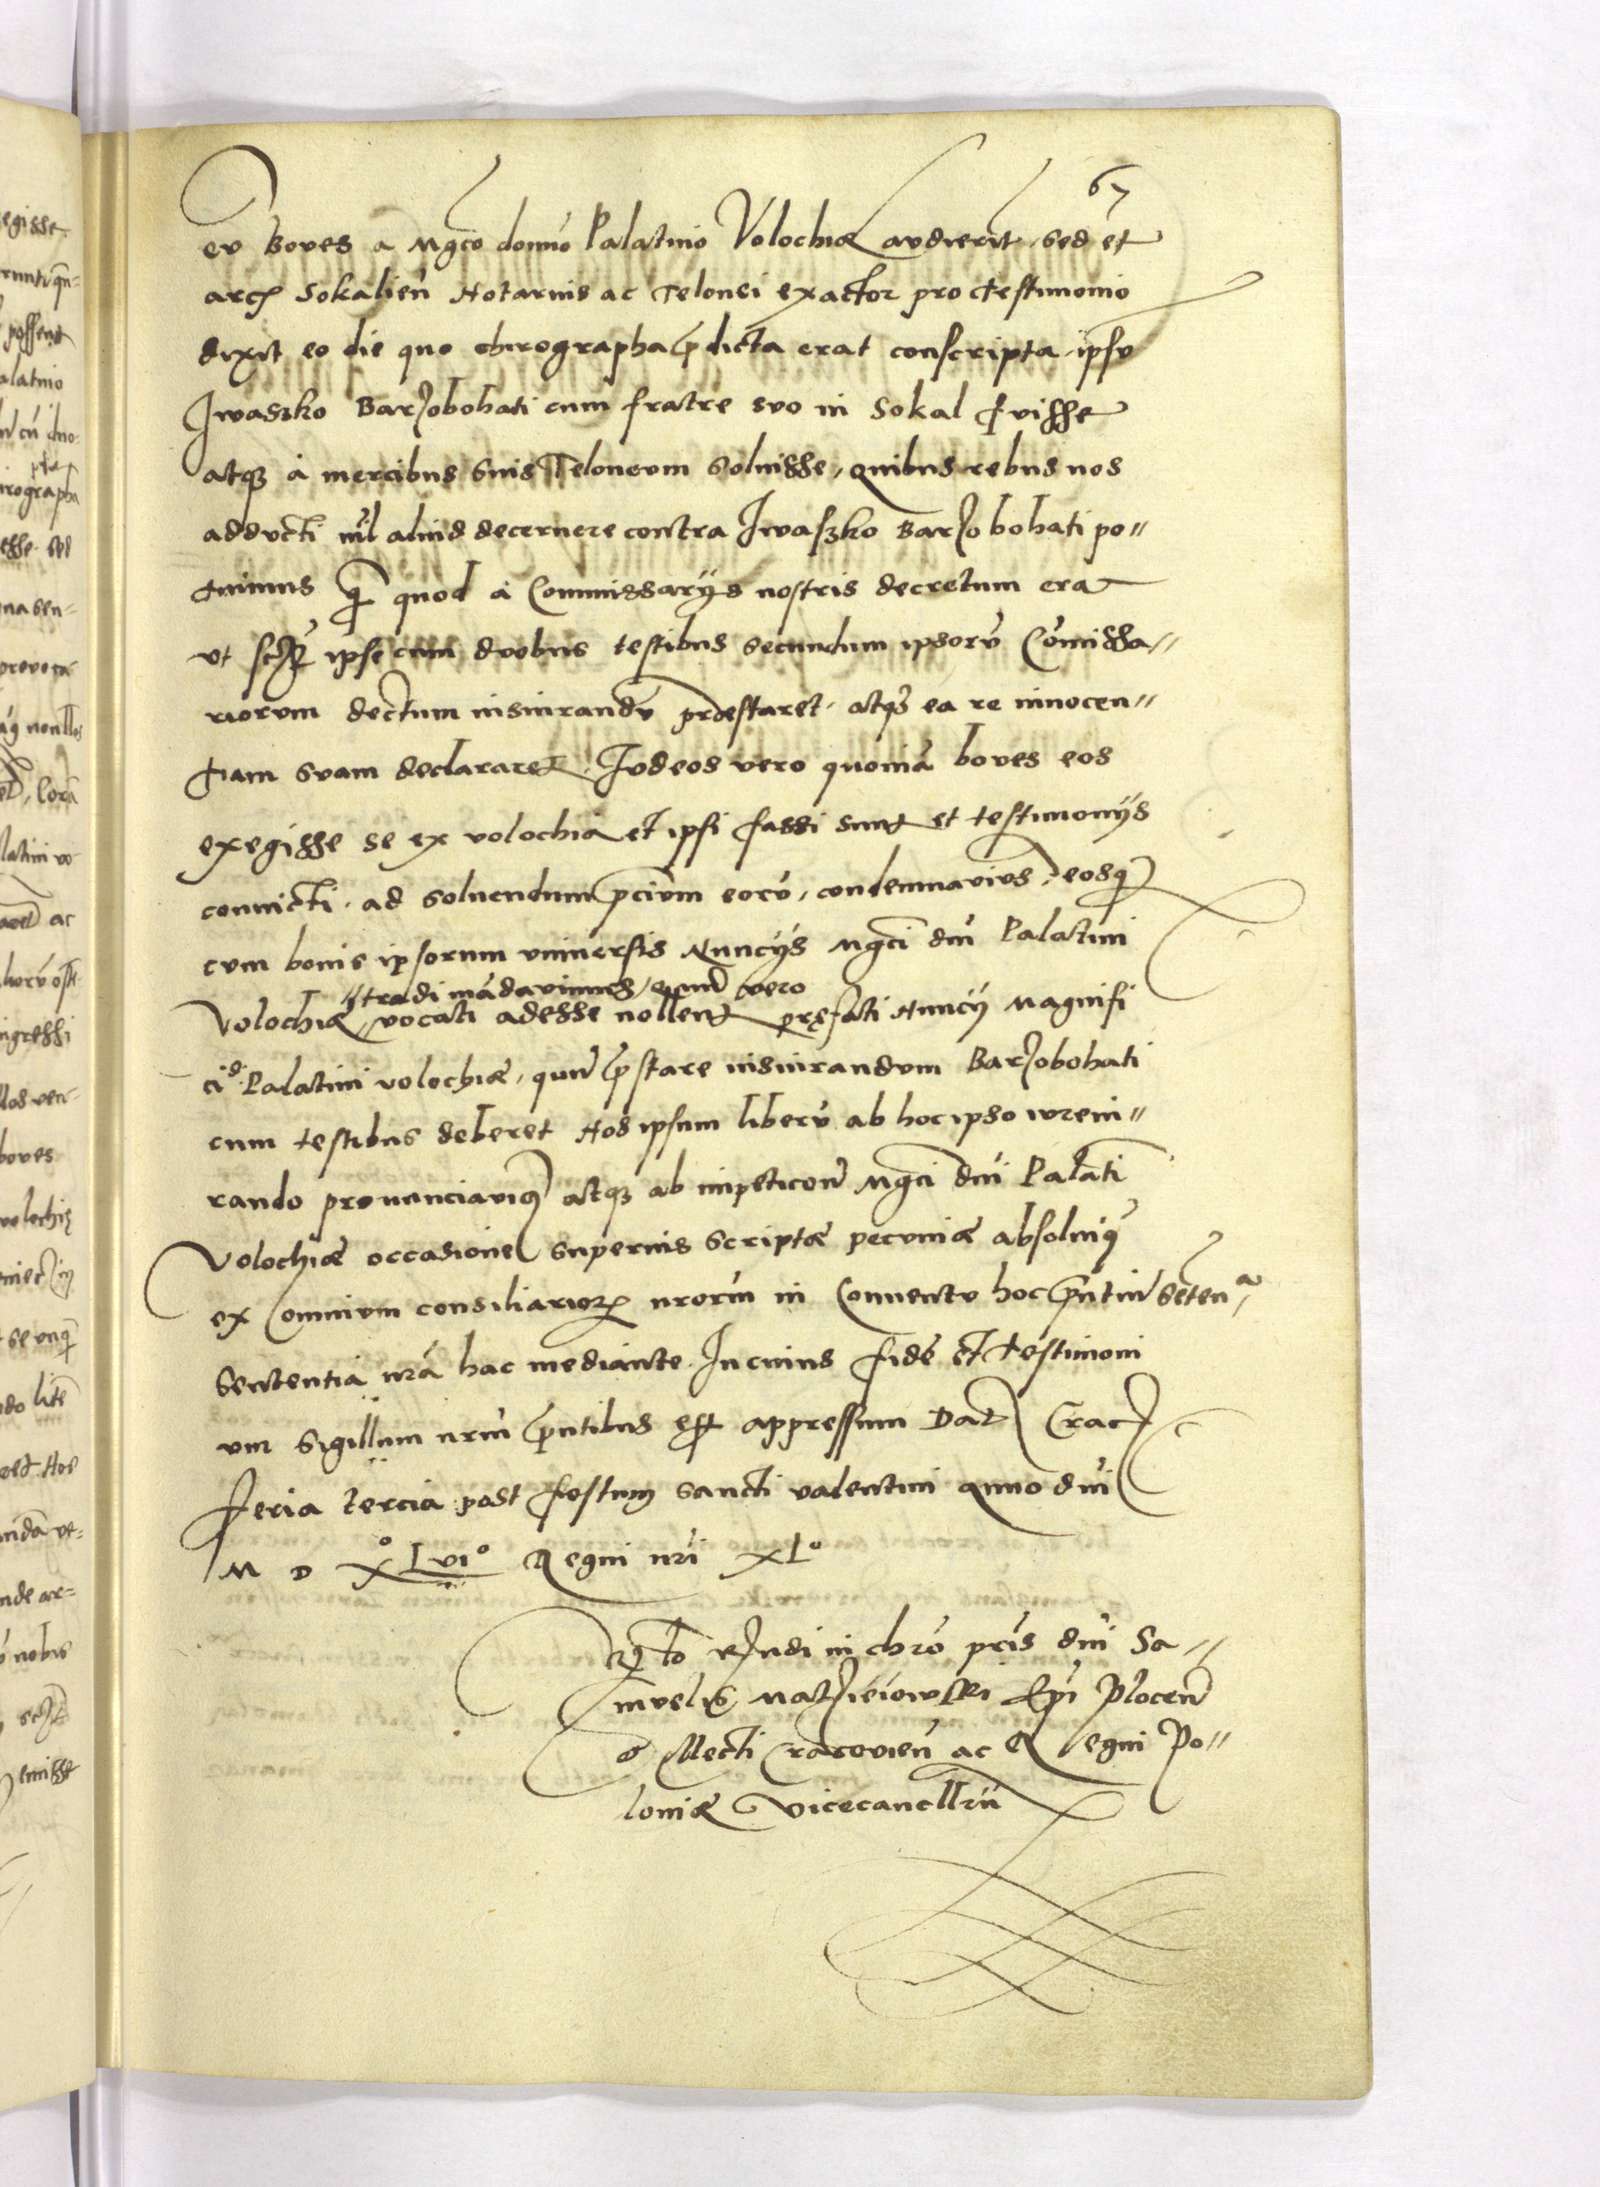 67
eu boves a Mgco domno Palatino Volochiæ audierit, sed et
arcis Sokalien̄ Notarius ac Telonei exactor pro testimonio
dixit eo die quo chirographa p̄dicta erat conscripta, ipsū
Jwaszko Barsobohati cum fratre suo in Sokal fuisse
atqꝫ à mercibus suis Teloneum soluisse, quibus rebus nos
adducti nil aliud decernere contra Jwaszko Barso bohati po⸗
tuimus qm̄ quod à Commissarijs nostris decretum erat
ut ipse cum duobus testibus secundum ipsorū Comissa⸗
riorum dectum iusiurandū præstaret, atqꝫ ea re innocen⸗
tiam suam declararet. Judeos vero quoniā boves eos
exegisse se ex volochia et ipsi fassi sunt et testimonijs
conuicti, ad soluendum p̄cium eorū, condemnavimus, eosqꝫ
cum bonis ipsorum vniuersis Nuncijs Mgci dni Palatini
tradi mādavimus, quū vero
Volochiæ vocati adesse nollent præfati Nuncij Magnifi
ci d. Palatini volochiæ, qum p̄stare iusiurandum Barsobohati
cum testibus deberet Nos ipsum liberū ab hoc ipso iureiu⸗
rando pronunciavimꝰ atqꝫ ab impeticone Mgci dni Palati
Volochiæ occasione superius scriptæ pecuniæ absoluimꝰ
ex omnium consiliarioꝝ nrorum in Conuentu hoc p̄ntiū sēten.ᵃ
Sententia nr̄a hac mediante. In cuius fidē et testimoni
um Sigillum nrm̄ p̄ntibus est appressum Dat Crac
feria tercia post festum Sancti valentini anno dni
M D X°Lvi° Regni nri XL°
R̄lto Rndi in chrō pris dni Sa⸗
muelis Maczieiowski Epi Plocen̄
et electi Cracovien̄ ac Regni Po⸗
loniæ Vicecancllrii